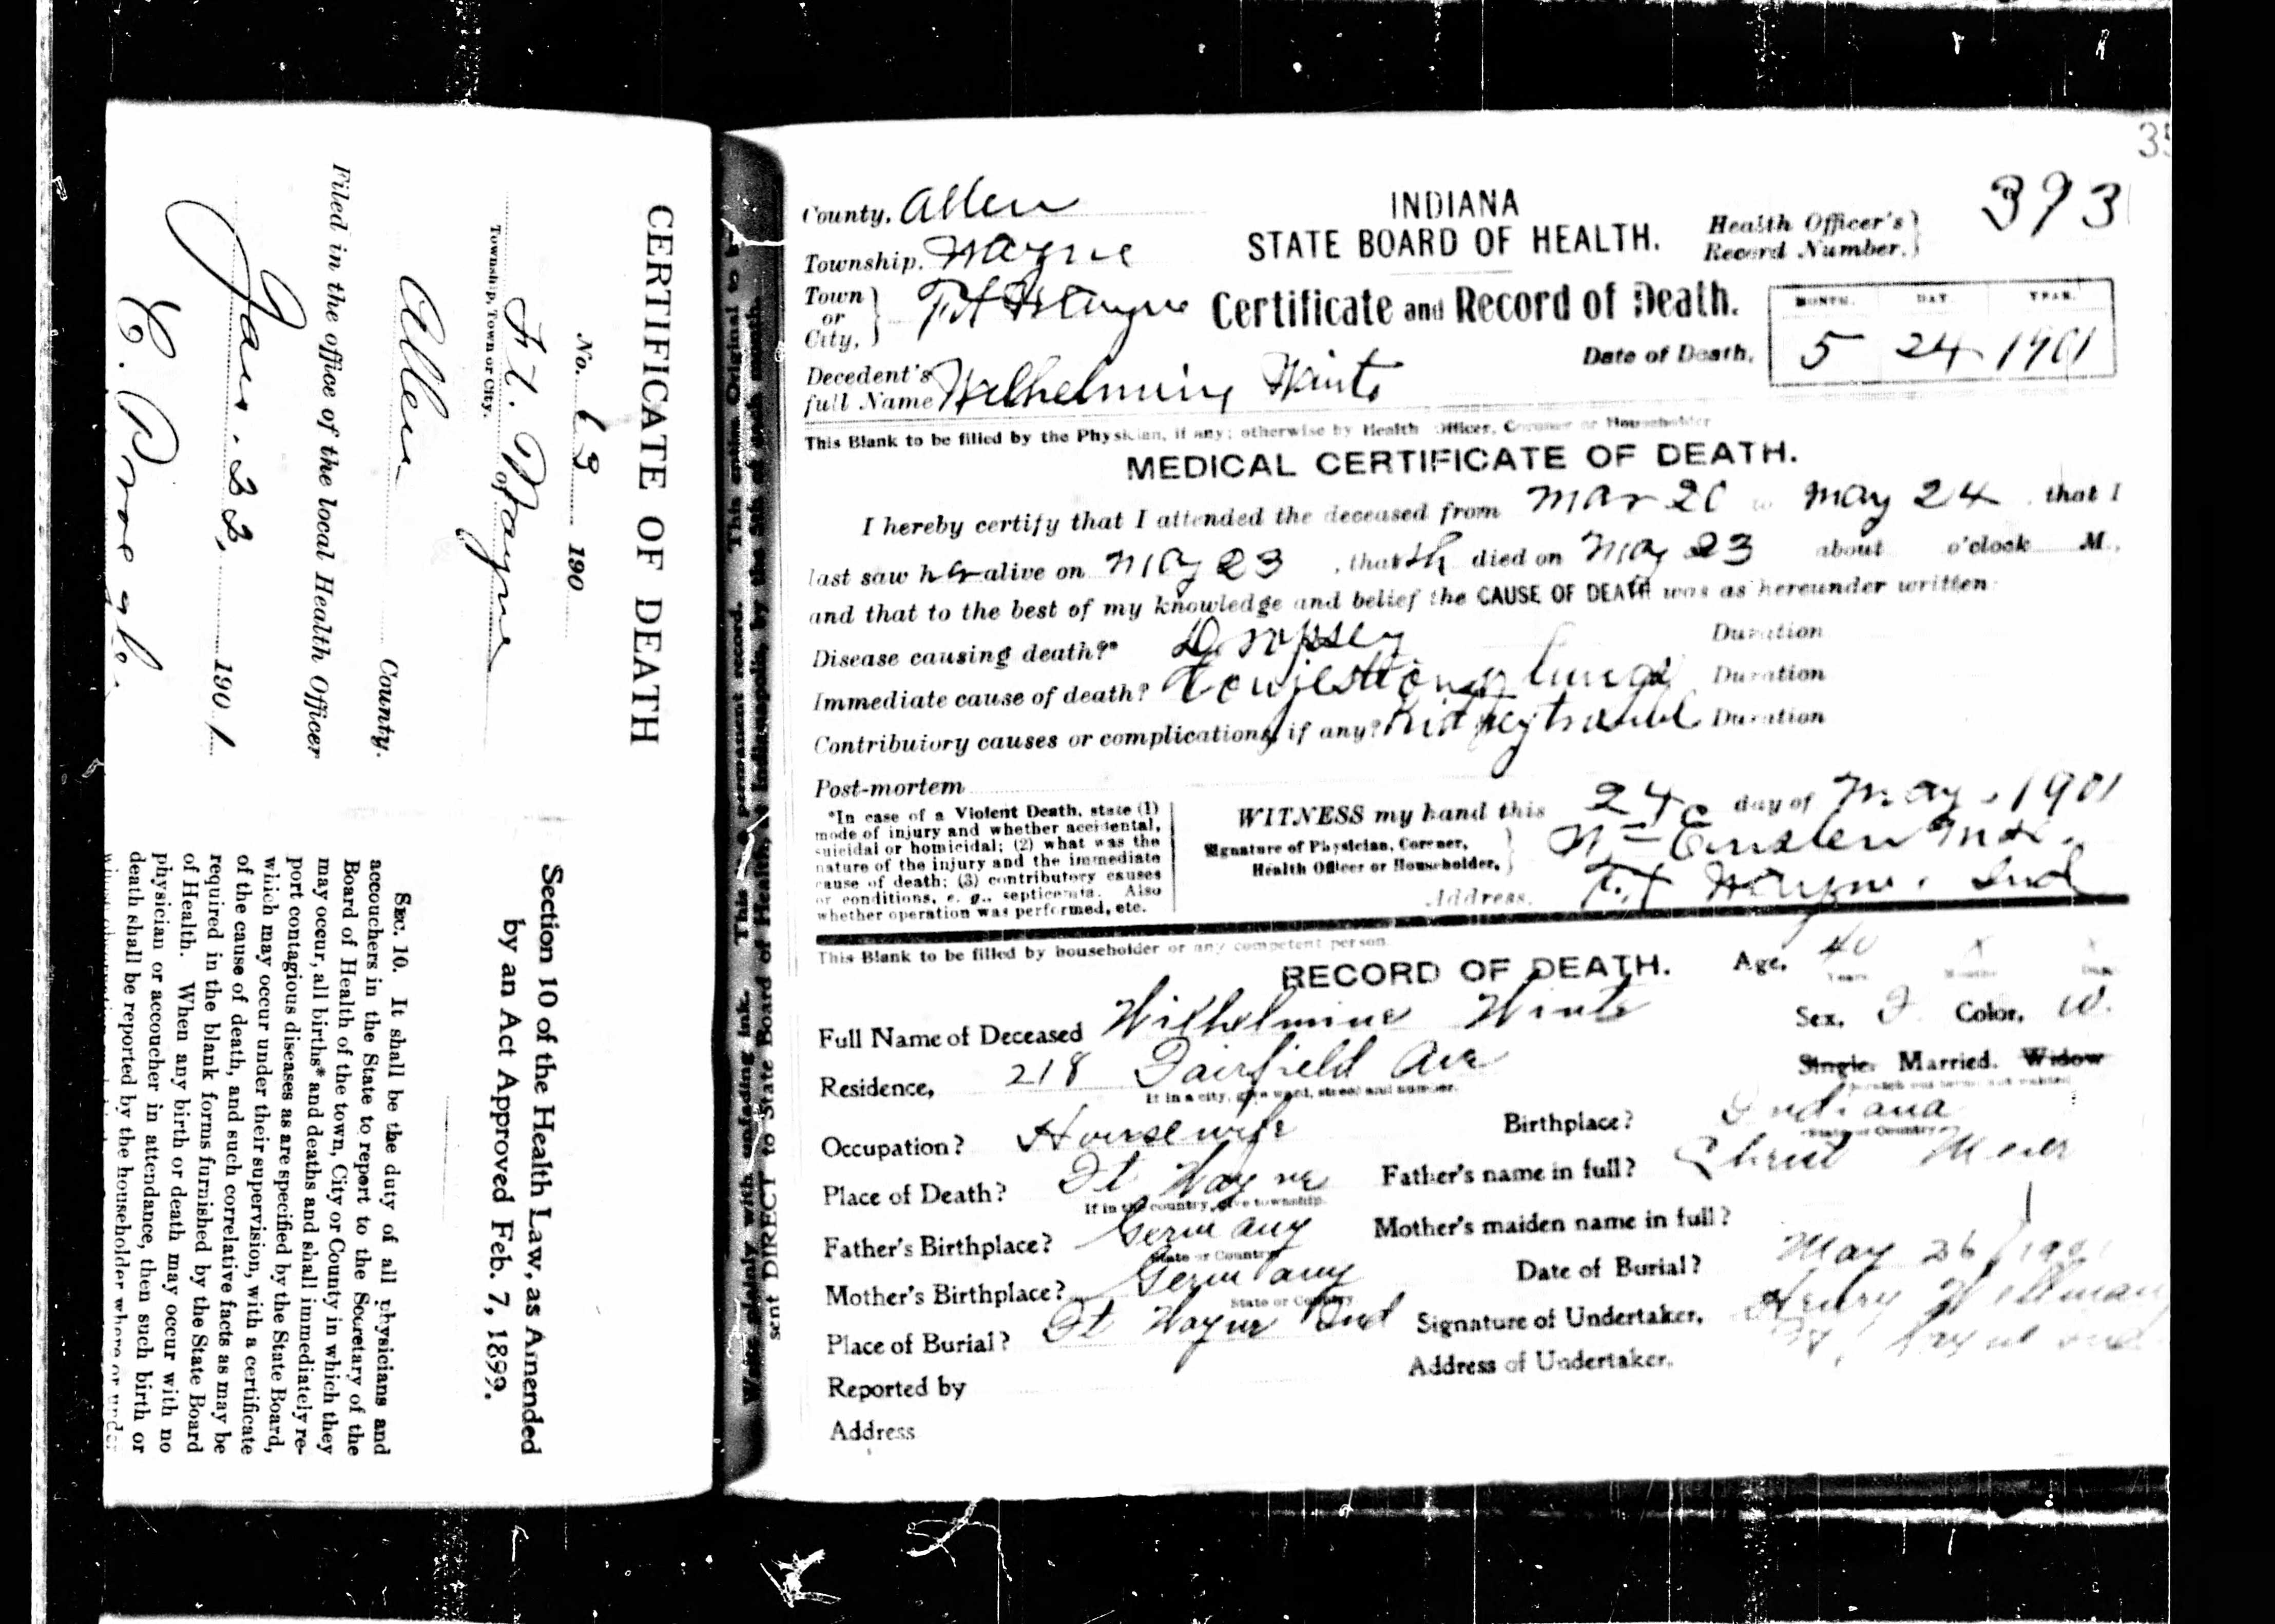 CERTIFICATE OF DEATH
No. 63 190
Ft. Wayne
Township, Town or City. of
Allen County.
Filed in the office of the local Health Officer
Jan. 190 1
E.
Section 10 of the Health Law, as Amended
by an Act Approved Feb. 7, 1899.
SEC. 10. It shall be the duty of all physicians and
accouchers in the State to report to the Secretary of the
Board of Health of the town, City or County in which they
may occur, all births* and deaths and shall immediately re-
port contagious diseases as are specified by the State Board,
which may occur under their supervision, with a certificate
of the cause of death, and such correlative facts as may be
required in the blank forms furnished by the State Board
of Health. When any birth or death may occur with no
physician or accoucher in attendance, then such birth or
death shall be reported by the householder where or under
Write plainly with unfading ink. This is a permanent record. This Original to be
sent DIRECT to State Board of Health, at Indianapolis, by the 5th of each month.
35
County, Allen
INDIANA
STATE BOARD OF HEALTH.
Health Officer's
Record Number, 393
Township, Wayne
Town or City, Ft Wayne
Certificate and Record of Death.
MONTH. DAY. YEAR.
Date of Death, 5 24 1901
Decedent's full Name Wilhelmine
This Blank to be filled by the Physician, if any; otherwise by Health Officer, Coroner or Householder
MEDICAL CERTIFICATE OF DEATH.
I hereby certify that I attended the deceased from Mar 20 to May 24, that I
last saw her alive on May 23, that died on May 23 about o'clock M.,
and that to the best of my knowledge and belief the CAUSE OF DEATH was as hereunder written:
Disease causing death?* Dropsey Duration
Immediate cause of death? Conjestion of lungs Duration
Contributory causes or complications, if any? Kidney Duration
Post-mortem
*In case of a Violent Death, state (1)
mode of injury and whether accidental,
suicidal or homicidal; (2) what was the
nature of the injury and the immediate
cause of death; (3) contributory causes
or conditions, e. g., septicemia. Also
whether operation was performed, etc.
WITNESS my hand this 24 day of May, 1901
Signature of Physician, Coroner,
Health Officer or Householder,
Address, Ft Wayne, Ind
This Blank to be filled by householder or any competent person.
RECORD OF DEATH.
Age, 40 x x
Years Months Days
Full Name of Deceased Wilhelmine
Sex, F Color, W.
Residence, 218 Fairfield Ave
If in a city, give ward, street and number.
Single. Married. Widow
Occupation? Housewife
Birthplace? Indiana
State or Country
Place of Death? Ft Wayne
If in the country, give township.
Father's name in full? Christ
Father's Birthplace? Germany
State or Country
Mother's maiden name in full?
Mother's Birthplace? Germany
State or Country
Date of Burial? May 26 1901
Place of Burial? Ft Wayne Ind
Signature of Undertaker, Henry
Reported by
Address of Undertaker, Ft. Wayne Ind
Address